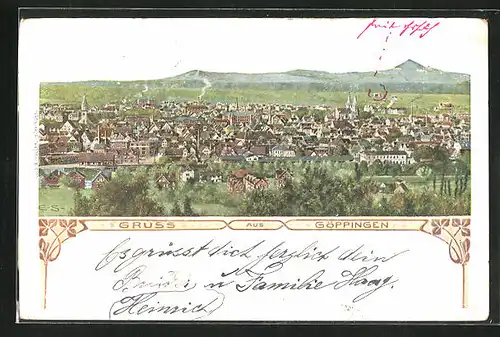 GRUSS AUS GÖPPINGEN
Es grüsst dich herzlich dein
u Familie Haag.
Heinrich